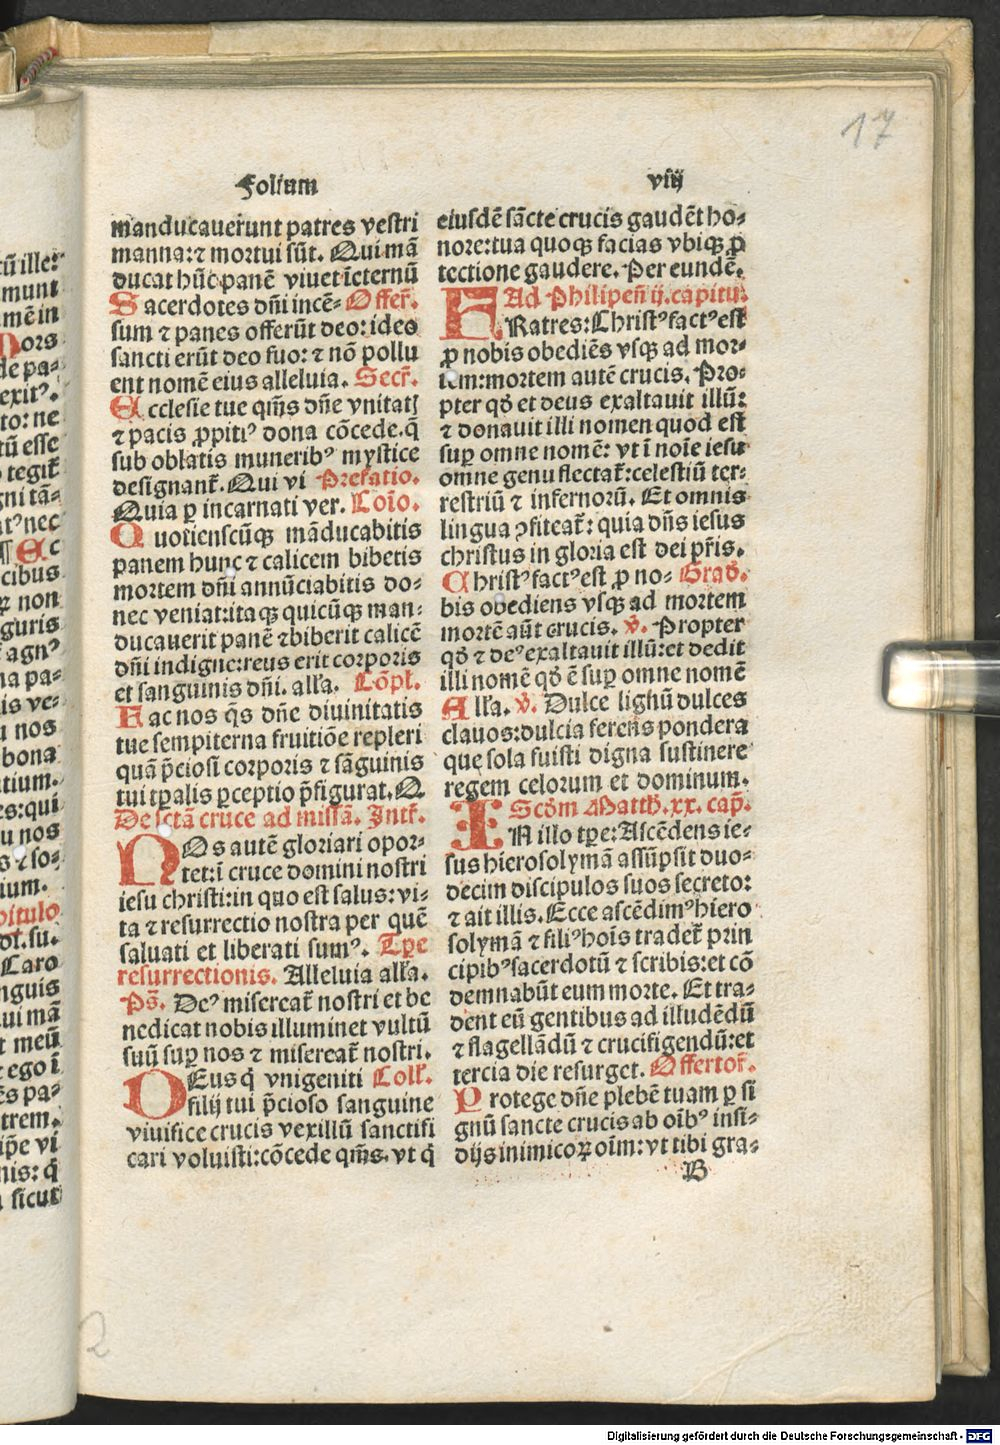 17
Folium viij
manducauerunt patres vestri
manna: ⁊ mortui sūt. Qui mā
ducat hūc panē viuet īeternū
Sacerdotes dn̄i incē- Offer̄.
sum ⁊ panes offerūt deo: ideo
sancti erūt deo suo: ⁊ nō pollu
ent nomē eius alleluia. Secr̄.
Ecclesie tue qm̄s dn̄e vnitatꝭ
⁊ pacis ꝓpitiꝰ dona cōcede. q̄
sub oblatis muneribꝰ mystice
designant̄. Qui vi Prefatio.
Quia ꝑ incarnati ver. Cōio.
Quotienscūqꝫ māducabitis
panem hunc ⁊ calicem bibetis
mortem dn̄i annūciabitis do-
nec veniat: itaqꝫ quicūqꝫ man-
ducauerit panē ⁊ biberit calicē
dn̄i indigne: reus erit corporis
et sanguinis dn̄i. alla. Cōpl.
Fac nos q̄s dn̄e diuinitatis
tue sempiterna fruitiōe repleri
quā p̄ciosi corporis ⁊ sāguinis
tui tꝑalis ꝑceptio p̄figurat. Q
De sctā cruce ad missā. Intr̄.
NOs autē gloriari opor-
tet: ī cruce domini nostri
iesu christi: in quo est salus: vi-
ta ⁊ resurrectio nostra per quē
saluati et liberati sumꝰ. Tꝑe
resurrectionis. Alleluia alla.
Ps̄. Deꝰ misereat̄ nostri et be
nedicat nobis illuminet vultū
suū suꝑ nos ⁊ misereat̄ nostri.
DEus q̇ vnigeniti Coll̄.
filij tui p̄cioso sanguine
viuifice crucis vexillū sanctifi
cari voluisti: cōcede qm̄s. vt q̇
eiusdē sācte crucis gaudēt ho-
nore: tua quoqꝫ facias vbiqꝫ ꝓ
tectione gaudere. Per eundē.
Ad Philipeñ ij. capitu.
FRatres: Christꝰ factꝰ est
ꝓ nobis obediēs vsqꝫ ad mor-
tem: mortem autē crucis. Pro-
pter qđ et deus exaltauit illū:
⁊ donauit illi nomen quod est
suꝑ omne nomē: vt ī noīe iesu
omne genu flectat̄: celestiū ter-
restriū ⁊ infernorū. Et omnis
lingua ꝯfiteat̄: quia dn̄s iesus
christus in gloria est dei pr̄is.
Christꝰ factꝰ est ꝓ no- Grad̄.
bis obediens vsqꝫ ad mortem
mortē aūt crucis. v̄. Propter
qđ ⁊ deꝰ exaltauit illū: et dedit
illi nomē qđ ē suꝑ omne nomē
Alla. v̄. Dulce lignū dulces
clauos: dulcia ferens pondera
que sola fuisti digna sustinere
regem celorum et dominum.
Scđm Matth̄. xx. cap̄.
IN illo tꝑe: Ascēdens ie-
sus hierosolymā assūpsit duo-
decim discipulos suos secreto:
⁊ ait illis. Ecce ascēdimꝰ hiero
solymā ⁊ filiꝰ hoīs tradet̄ prin
cipibꝰ sacerdotū ⁊ scribis: et cō
demnabūt eum morte. Et tra-
dent eū gentibus ad illudēdū
⁊ flagellādū ⁊ crucifigendū: et
tercia die resurget. Offertor̄.
Protege dn̄e plebē tuam ꝑ si
gnū sancte crucis ab oībꝰ insi-
dijs inimicoꝝ oīm: vt tibi gra-
B
2
Digitalisierung gefördert durch die Deutsche Forschungsgemeinschaft - DFG